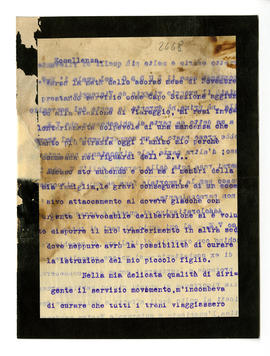 2668
Eccellenza,
verso la metà dello scorso mese di Novembre
prestando servizio come Capo Stazione aggiun
alla stazione di Viareggio, mi resi invo
lontariamente colpevole di una mancanza che
tanto più strazia oggi l'animo mio perchè
commessa nei riguardi della E.V..
stò subendo e con me i membri della
mia famiglia, le gravi conseguenze di un ecces
sivo attaccamento al dovere giacchè con
urgente irrevocabile deliberazione si è volu
to disporre il mio trasferimento in altra sede
dove neppure avrò la possibilità di curare
la istruzione del mio piccolo figlio.
Nella mia delicata qualità di diri
gente il servizio movimento, m'incombeva
di curare che tutti i treni viaggiassero